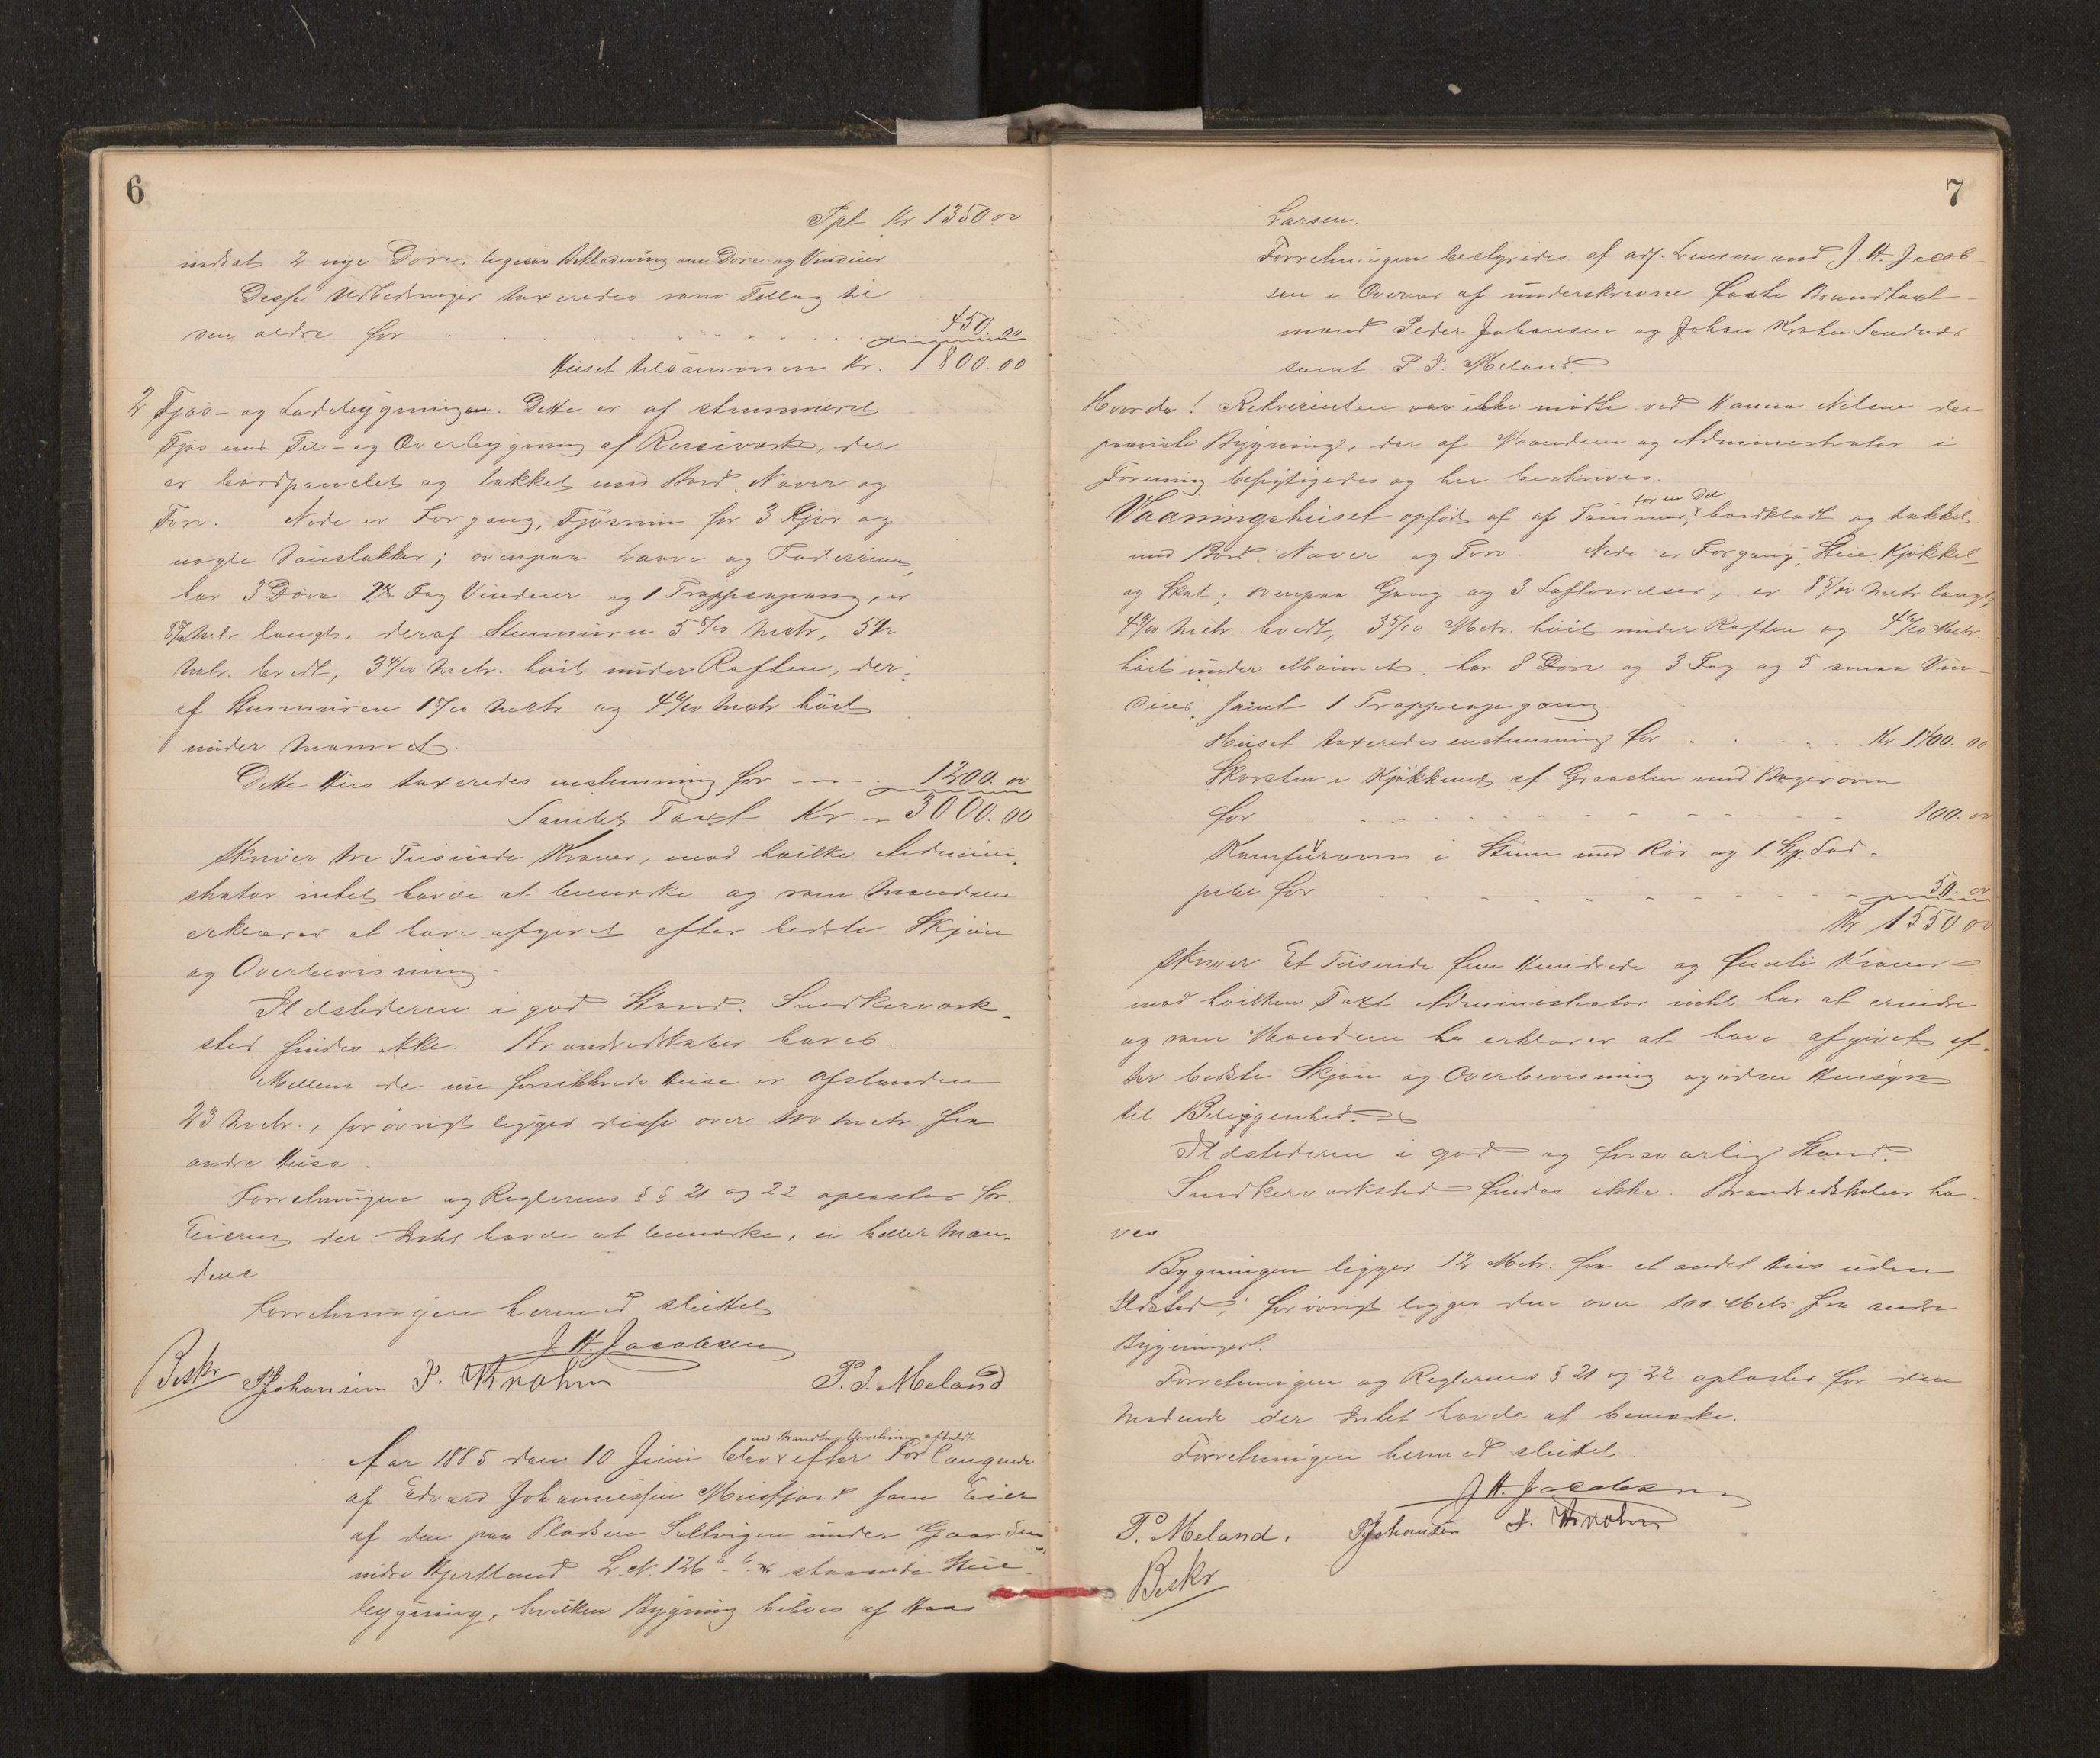 6
Tpt Kr 1350.00
indsat 2 nye Döre. ligesaa Beklædning om Döre og Vinduer
Disse Udbedringer taxeredes som Tillæg til
den ældre for 450.00
Huset tilsammen Kr. 1800.00
2 Fjös- og Ladebygningen. Dette er af stenmuret
Fjös med Til- og Overbygning af Reisværk, der
er bordpanelet og takket med Bord, Næver og
Torv. Nede er Forgang, Fjösrum for 3 Kjör og
nogle Sauer; ovenpaa Laave og Foderrum,
har 3 Döre 2 Fag Vinduer og 1 Trappeopgang, er
8 Metr langt, deraf Stenmuren 5 5/10 Metr, 5 1/2
Metr. bredt, 3 4/10 Metr. höit under Raften, der-
af Stenmuren 1 5/10 Metr og 4 6/10 Metr höit
under Mönnet.
Dette Hus taxeredes enstemmig for 1200.00
Samlet Taxt Kr. 3000.00
skriver tre Tusinde Kroner, mod hvilke Admini-
strator intet havde at bemærke og som Mændene
erklærer at have afgivet efter bedste Skjön
og Overbevisning.
Ildstederne i god Stand. Snedkerværk-
sted findes ikke. Brandredskaber haves.
Mellem de nu forsikkrede Huse er Afstanden
23 Metr., forövrigt ligger disse over 100 Metr. fra
andre Huse.
Forretningen og Reglernes §§ 21 og 22 oplæstes for
Eieren der Intet havde at bemærke, ei heller Mæn-
dene
Forretningen hermed sluttet
J. H. Jacobsen
Beskr PJohansen J. Krohn P. J. Meland
Aar 1885 den 10 Juni blev efter Forlangende
en Brandtaxtforretning afholdt
af Edvard Johannessen Meisfjord som Eier
af den paa Pladsen Seltvigen under Gaarden
indre Hjertland L. N. 126 staaende Hus-
bygning, hvilken Bygning beboes af Hans
7
Larsen.
Forretningen bestyredes af adj. Lensmand J. H. Jacob-
sen i Overvær af underskrevne faste Brandtaxt-
mænd Peder Johansen og Johan Krohn
samt P. J. Meland
Hvorda! Rekvirenten var ikke mödte ved Hanna Nilsen der
paaviste Bygning, der af Mændene og Administrator i
Forening besigtigedes og her beskrives.
Vaaningshuset opfört af af Tömmer, for en Del bordklædt og takket
med Bord, Næver og Torv. Nede er Forgang, Stue Kjökken
og Skot; ovenpaa Gang og 3 Loftværelser, er 8 5/10 Metr langt,
4 9/10 Metr. bredt, 3 5/10 Metr. höit under Raften og 4 6/10 Metr.
höit under Mönnet, har 8 Döre og 3 Fag og 5 smaa Vin-
duer, samt 1 Trappeopgang
Huset taxeredes enstemmig for Kr 1400.00
Skorsten i Kjökkenet af Graasten med Bagerovn
for 100.00
Komfurovn i Stuen med Rör og 1 Lod-
pibe for 50.00
Kr 1550.00
skriver Et Tusinde fem Hundrede og femti Kroner
mod hvilken Taxt Administrator intet har at erindre
og som Mændene ha erklærer at have afgivet ef-
ter bedste Skjön og Overbevisning og uden Hensyn
til Beliggenhed.
Ildstederne i god og forsvarlig Stand.
Snedkerværksted findes ikke. Brandredskaber ha-
ves
Bygningen ligger 12 Metr. fra et andet Hus uden
Ildsted; forövrigt ligger den over 100 Metr. fra andre
Bygninger.
Forretningen og Reglernes § 21 og 22 oplæstes for den
Mödende der Intet havde at bemærke.
Forretningen hermed sluttet.
J. H. Jacobsen
P. Meland. PJohansen J. Krohn
Beskr